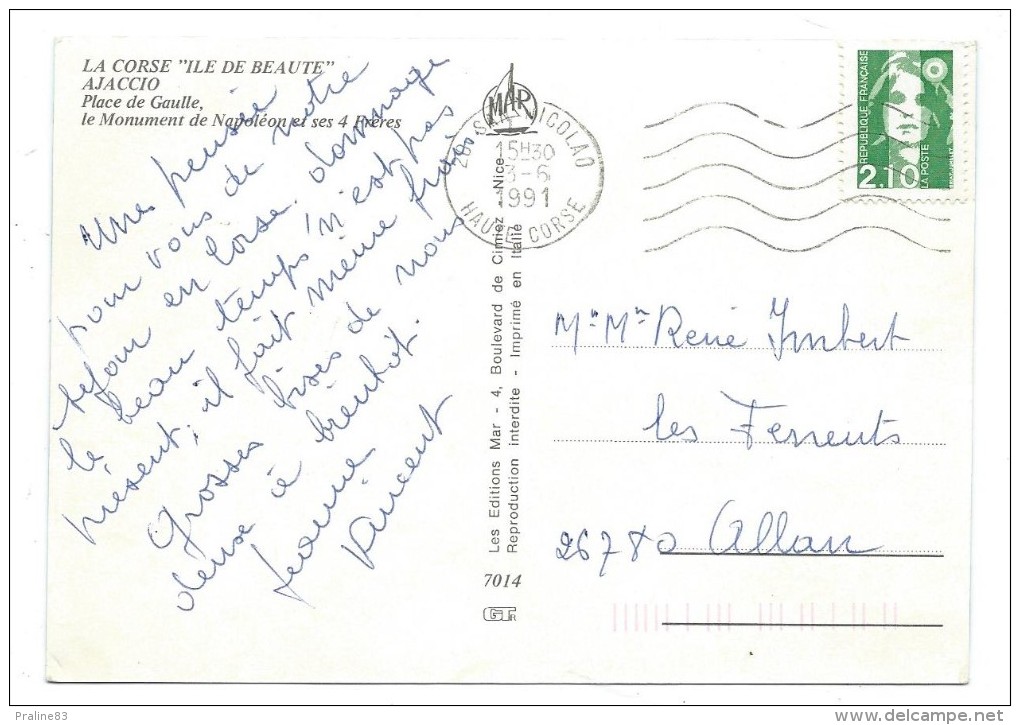 LA CORSE "ILE DE BEAUTE"
AJACCIO
Place de Gaulle,
le Monument de Napoléon et ses 4 Frères
Une pensée
pour vous de notre
séjour en Corse. dommage
le beau temps n'est pas
présent, il fait même frais
Grosses bises de nous
deux à bientôt.
Jeanne
Vincent
MAR
NICOLAO
15H30
3-6
1991
HAUTE CORSE
Les Editions Mar - 4, Boulevard de Cimiez - Nice
Reproduction interdite - Imprimé en Italie
7014
GTR
REPUBLIQUE FRANÇAISE
2,10
LA POSTE
Mr Mme René Imbert
les Ferrents
26780 Allan
Praline83
delcampe.net